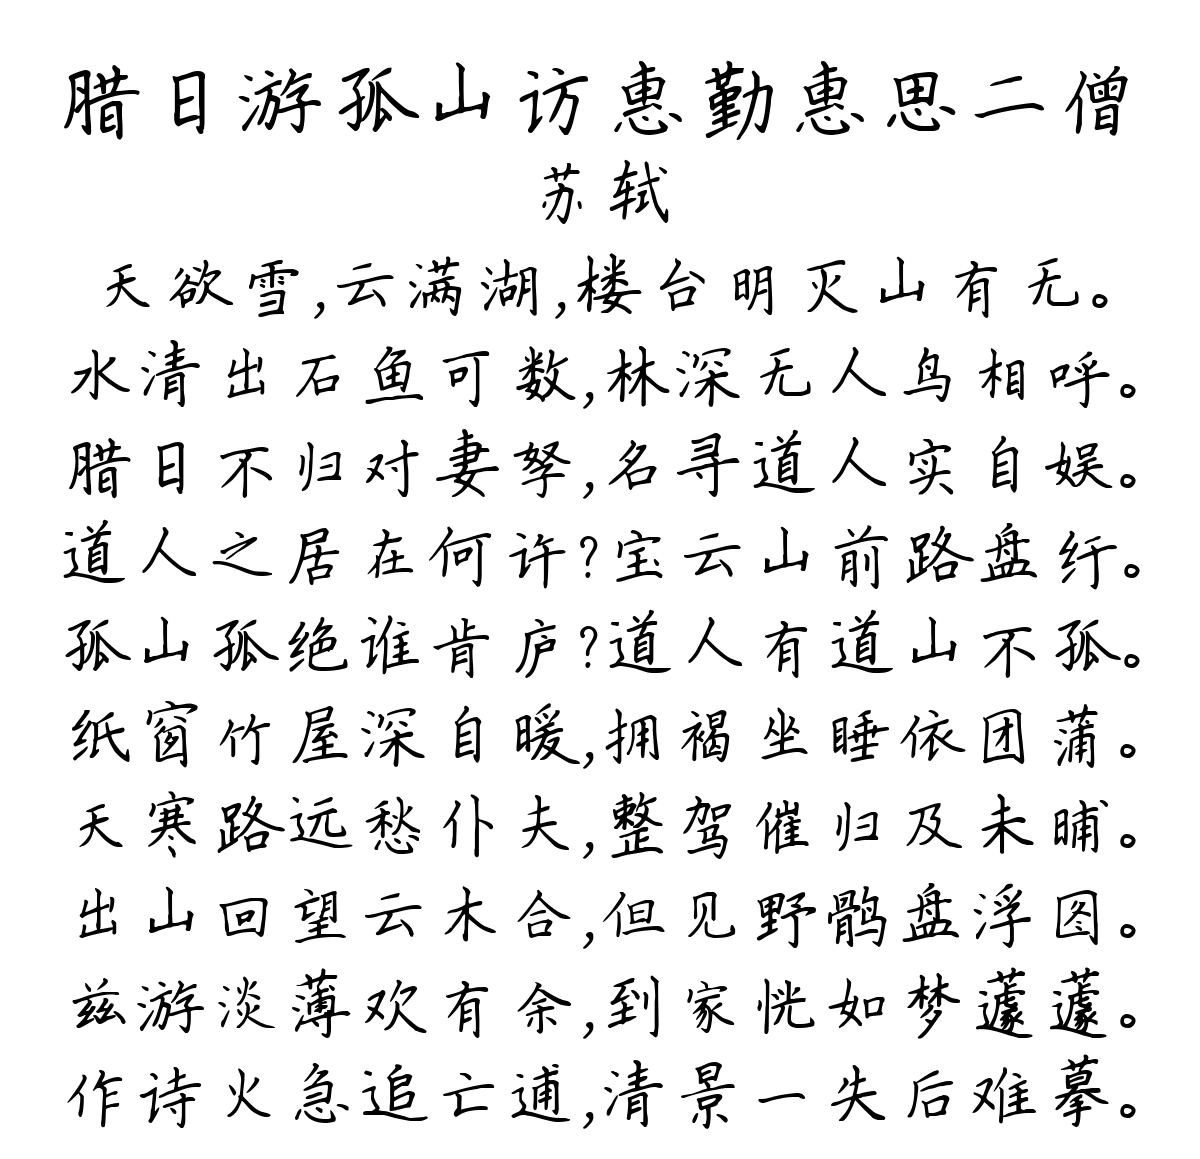 腊日游孤山访惠勤惠思二僧
苏轼
天欲雪,云满湖,楼台明灭山有无。
水清出石鱼可数,林深无人鸟相呼。
腊日不归对妻孥,名寻道人实自娱。
道人之居在何许?宝云山前路盘纡。
孤山孤绝谁肯庐?道人有道山不孤。
纸窗竹屋深自暖,拥褐坐睡依团蒲。
天寒路远愁仆夫,整驾催归及未晡。
出山回望云木合,但见野鹘盘浮图。
兹游淡薄欢有余,到家恍如梦蘧蘧。
作诗火急追亡逋,清景一失后难摹。